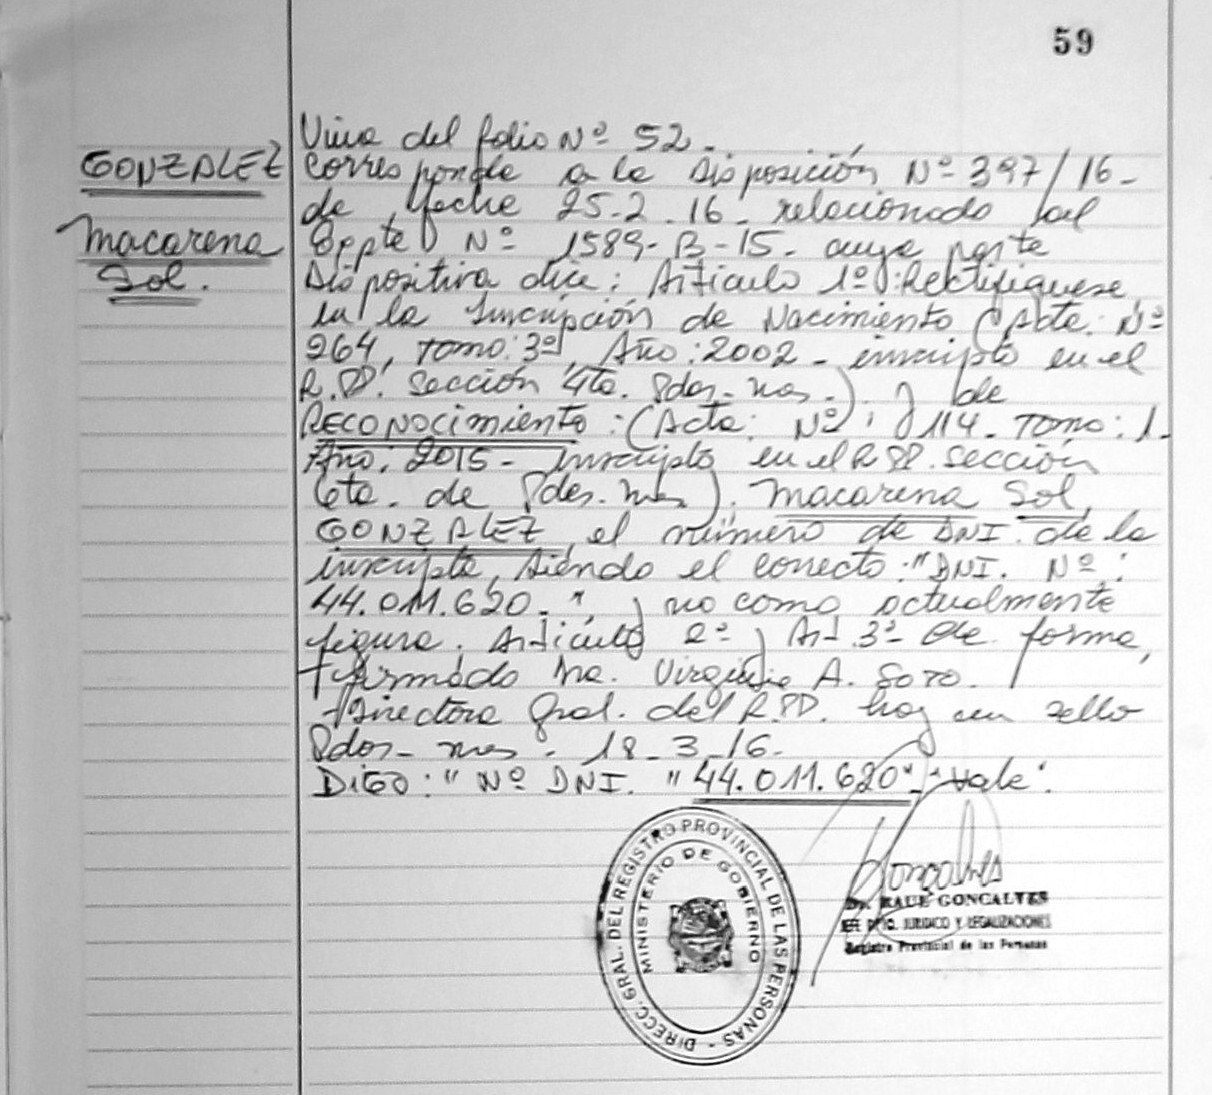 59
GONZALEZ
Macarena
Sol.
Viene del folio Nº 52.
Corresponde a la Disposición Nº 397/16-
de fecha 25-2-16- relacionado al
Eppte Nº 1589-B-15- cuya parte
Dispositiva dice: Artículo 1º: Rectifíquese,
en la Inscripción de Nacimiento (Acta: Nº
264, Tomo: 3º, Año: 2002- inscripto en el
R.PP. Sección 4ta. Pdas-mas.) y de
RECONOCIMIENTO: (Acta: Nº: 114- Tomo: 1-
Año: 2015- Inscripto en el R.PP. Sección
6ta. de Pdas. mas). Macarena Sol
GONZALEZ, el número de DNI. de la
inscripta, siendo el correcto: "DNI. Nº:
44.011.620.", y no como actualmente
figura. Artículo 2º y Art. 3º- De forma,
firmado Dra. Virginia A. Soto.
Directora Gral. del R.PP. hay un sello
Pdas- mas. 18-3-16-
DIGO: "Nº DNI. "44.011.620"-"Vale".
DIRECC. GRAL. DEL REGISTRO PROVINCIAL DE LAS PERSONAS -
MINISTERIO DE GOBIERNO
Goncalves
Dr. RAUL GONCALVES
JEFE DPTO. JURIDICO Y LEGALIZACIONES
Registro Provincial de las Personas